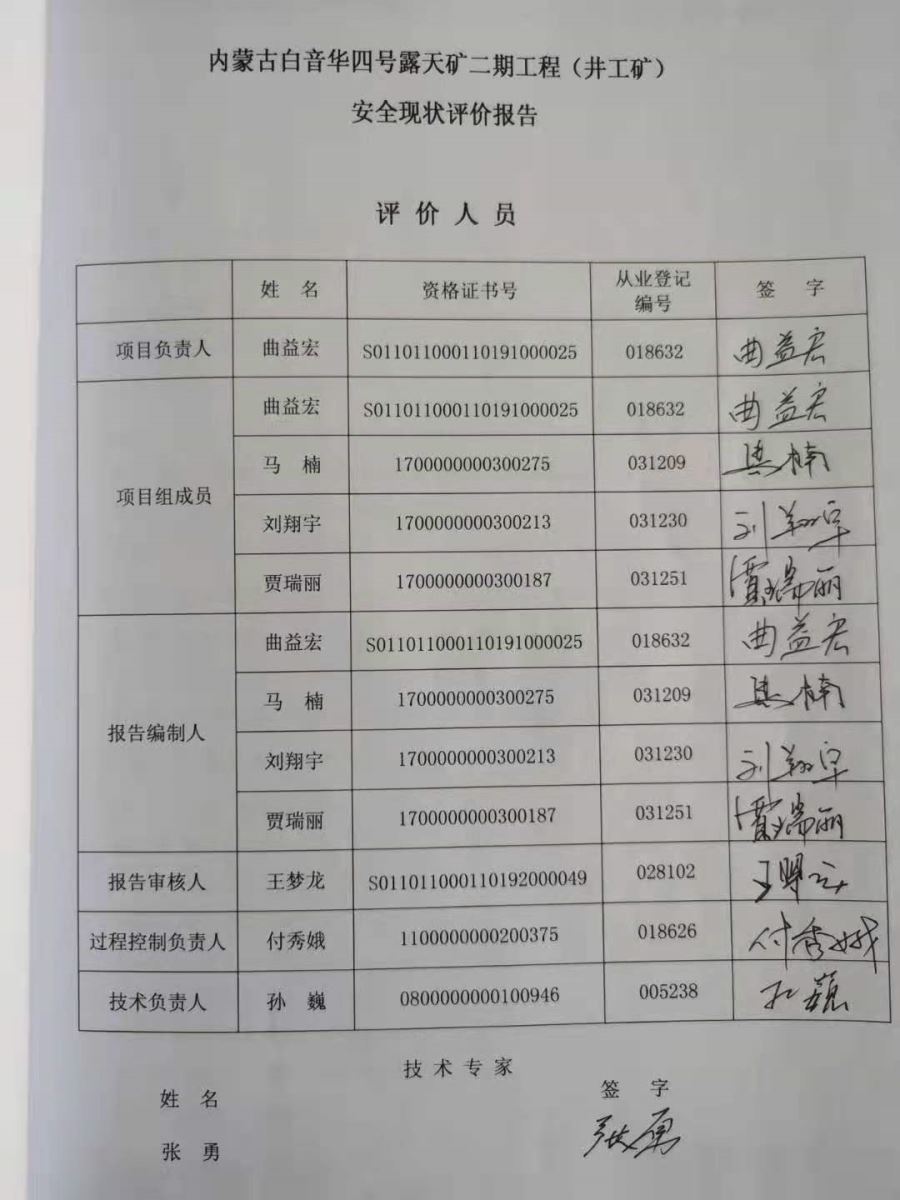 内蒙古白音华四号露天矿二期工程（井工矿）
安全现状评价报告
评价人员
姓 名 资格证书号 从业登记编号 签 字
项目负责人 曲益宏 S011011000110191000025 018632 曲益宏
项目组成员 曲益宏 S011011000110191000025 018632 曲益宏
马 楠 1700000000300275 031209 马楠
刘翔宇 1700000000300213 031230 刘翔宇
贾瑞丽 1700000000300187 031251 贾瑞丽
报告编制人 曲益宏 S011011000110191000025 018632 曲益宏
马 楠 1700000000300275 031209 马楠
刘翔宇 1700000000300213 031230 刘翔宇
贾瑞丽 1700000000300187 031251 贾瑞丽
报告审核人 王梦龙 S011011000110192000049 028102 王梦龙
过程控制负责人 付秀娥 1100000000200375 018626 付秀娥
技术负责人 孙 巍 0800000000100946 005238 孙巍
技术专家
姓 名 签 字
张 勇 张勇